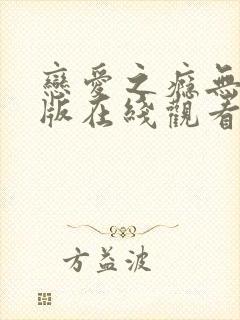 戀愛之癮無
版在綫觀看
方益波